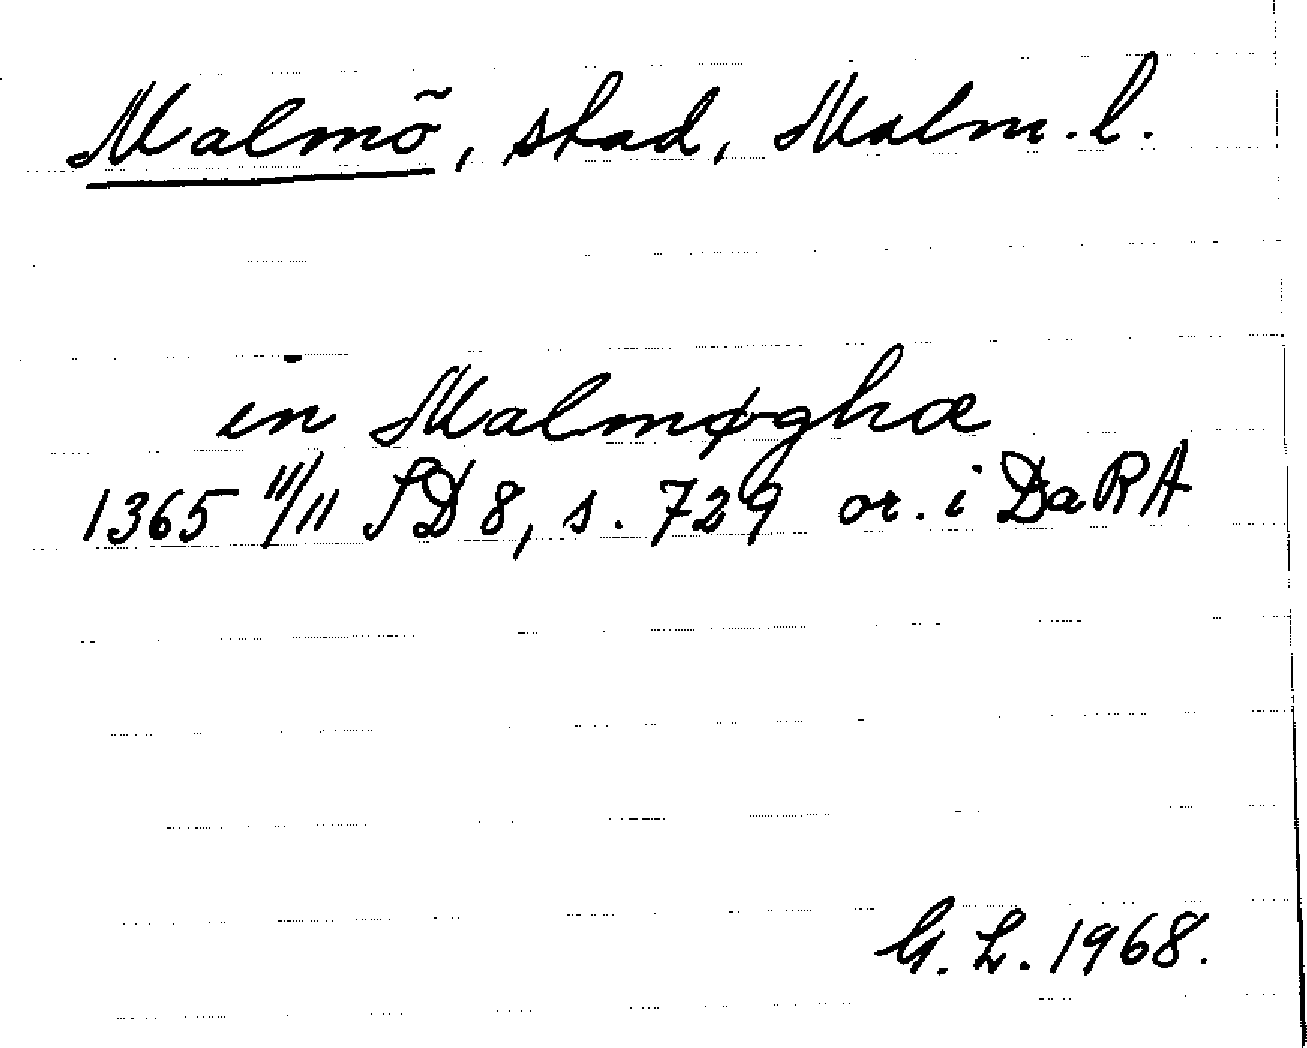 Malmö, stad, Malm. l.
in Malmøghæ
1365 11/11 SD 8, s. 729 or. i DaRA
G. L. 1968.